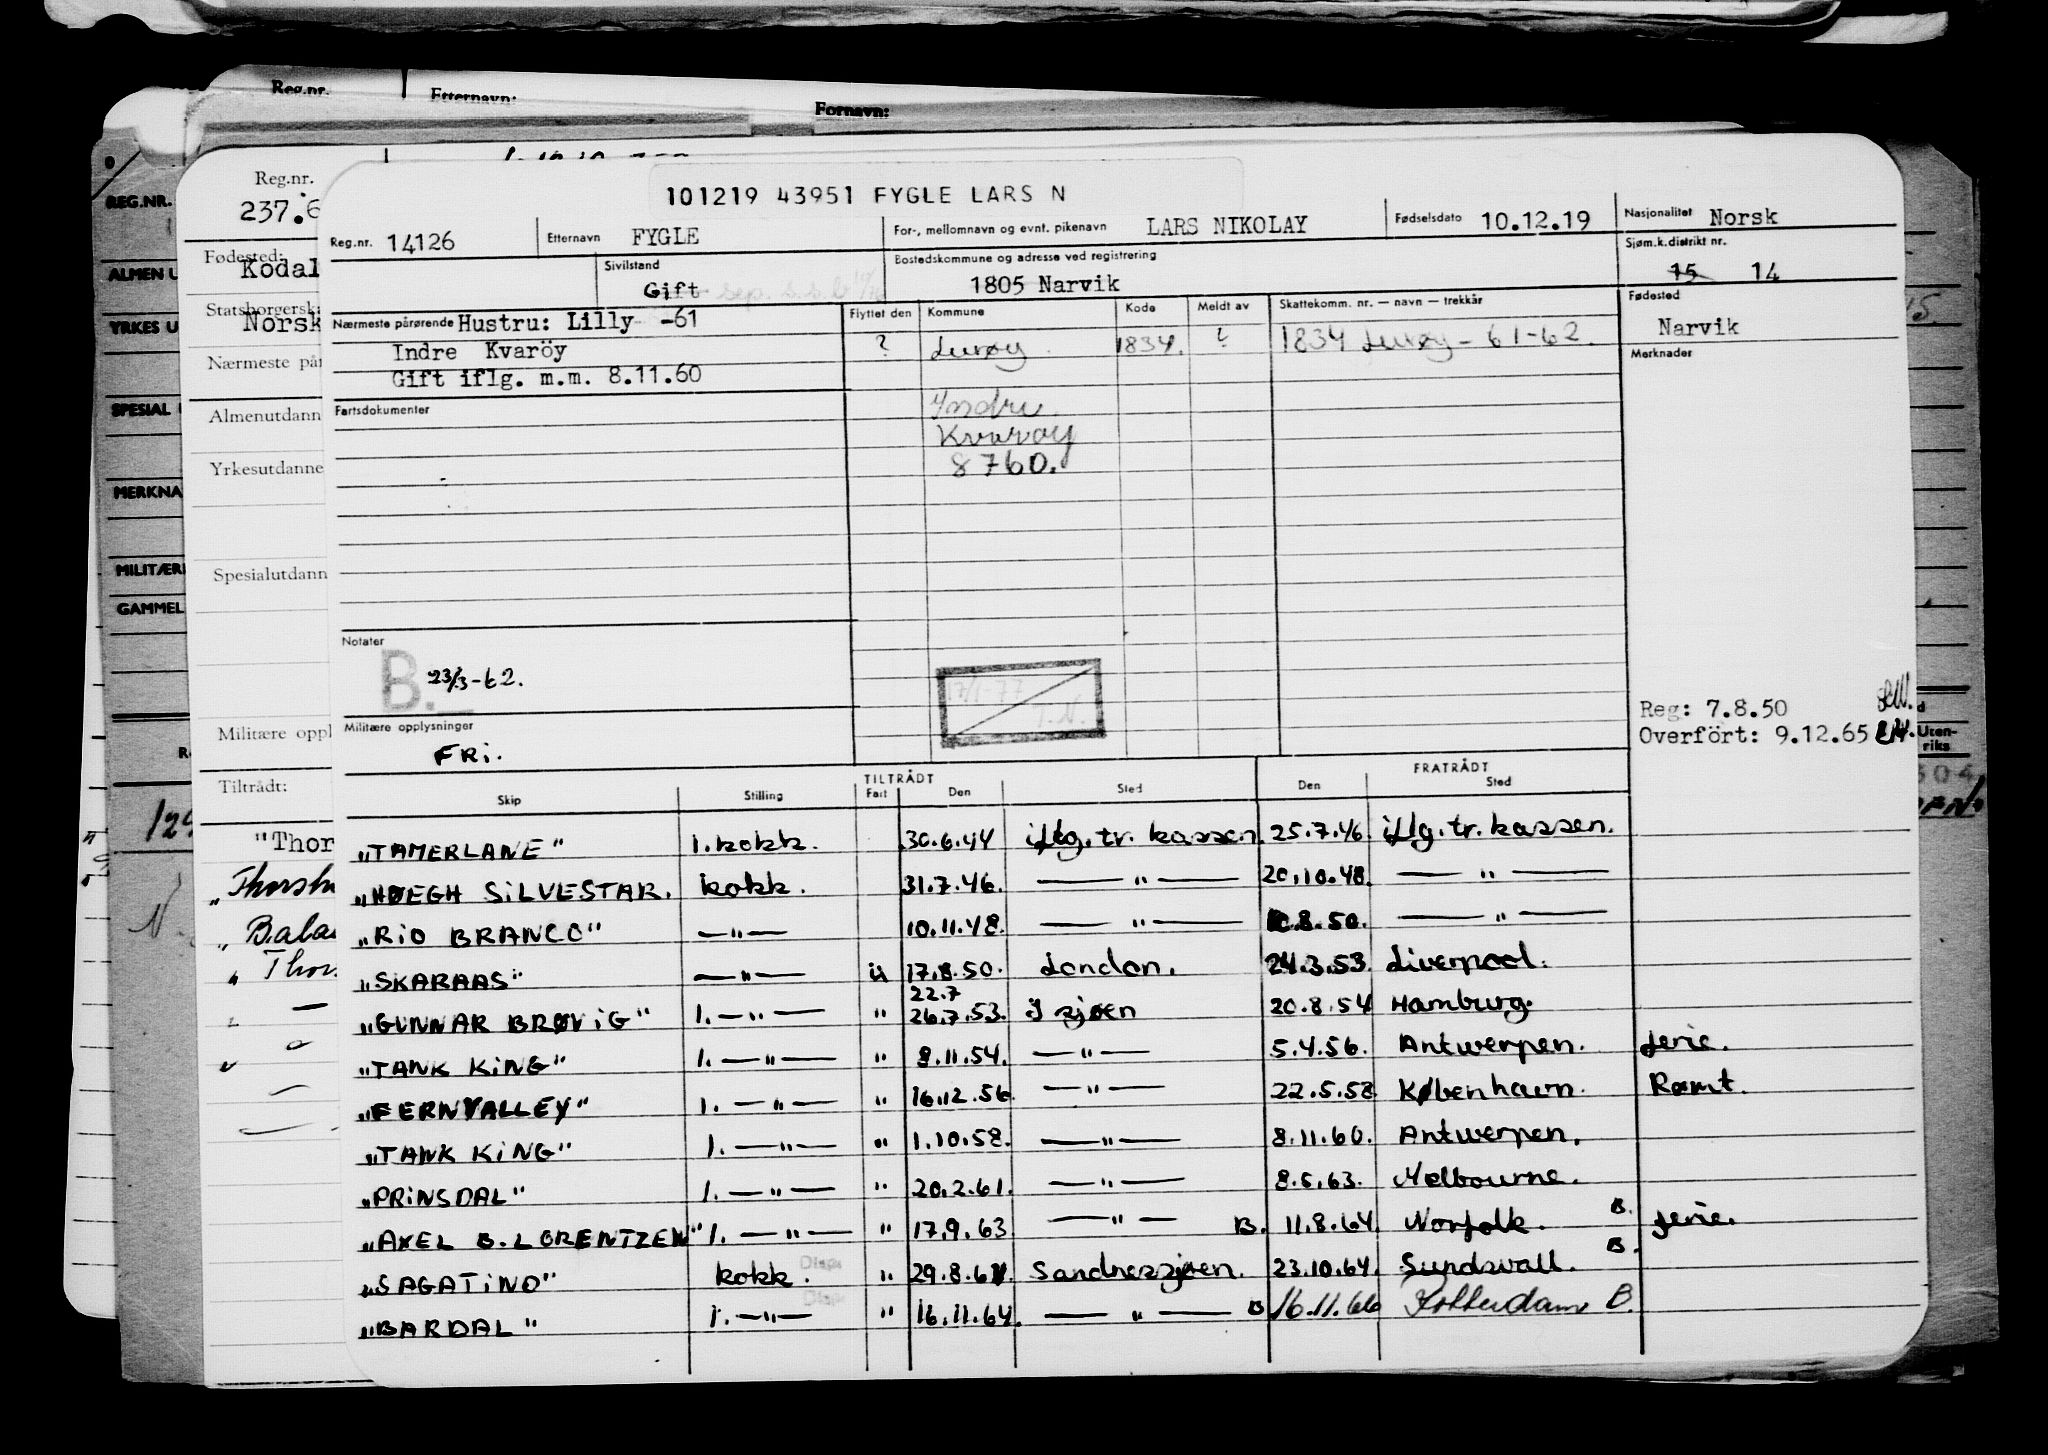 Reg.nr. Etternavn: Fornavn:
REG.NR.
ALMEN U
YRKES U
SPESIAL
MERKNA
MILITÆR
GAMMEL
Reg.nr.
237.6
Fødested:
Kodal
Statsborgersk
Norsk
Nærmeste på
Almenutdann
Yrkesutdanne
Spesialutdann
Militære oppl
Tiltrådt:
"Thor
"Thorsh
" Bala
" Thor
101219 43951 FYGLE LARS N
Reg.nr. 14126 Etternavn FYGLE For-, mellomnavn og evnt. pikenavn LARS NIKOLAY Fødselsdato 10.12.19 Nasjonalitet Norsk
Sivilstand Gift sep. Bostedskommune og adresse ved registrering 1805 Narvik Sjøm.k.distrikt nr. 15 14
Nærmeste pårørende Hustru: Lilly -61 Flyttet den Kommune Kode Meldt av Skattekomm. nr. — navn — trekkår Fødested Narvik
Indre Kvaröy ? Lurøy 1834. ? 1834 Lurøy - 61-62.
Gift iflg. m.m. 8.11.60 Merknader
Fartsdokumenter Indre
Kvarøy
8760.
Notater
B. 23/3-62.
17/1-77
Militære opplysninger
FRi.
Reg: 7.8.50
Overfört: 9.12.65
Uten-
riks
TILTRÅDT FRATRÅDT
Skip Stilling Fart Den Sted Den Sted
"TAMERLANE" 1. kokk. 30.6.44 iflg. tr. kassen. 25.7.46. iflg. tr. kassen.
"HØEGH SiLVESTAR. kokk. 31.7.46. — " — 20.10.48. — " —
"RiO BRANCO" — " — 10.11.48. — " — 10.8.50. — " —
"SKARAAS" — " — U 17.8.50. London. 24.3.53. Liverpool.
22.7
"GUNNAR BRØViG" 1. — " — " 26.7.53. I sjøen 20.8.54 Hamburg.
"TANK KiNG" 1. — " — " 8.11.54. — " — 5.4.56. Antwerpen. ferie.
"FERNVALLEY" 1. — " — " 16.12.56 — " — 22.5.58 København. Rømt.
"TANK KiNG" 1. — " — " 1.10.58. — " — 8.11.60. Antwerpen.
"PRiNSDAL" 1. — " — " 20.2.61. — " — 8.5.63. Melbourne.
"AXEL B. LORENTZEN" 1. — " — " 17.9.63 — " — B. 11.8.64. Norfolk. B. ferie.
"SAGATiND" kokk. Disp. " 29.8.64. Sandnessjøen. 23.10.64. Sundsvall. B.
"BARDAL" 1. — " — Disp. " 16.11.64. — " — B 16.11.66 Rotterdam B.